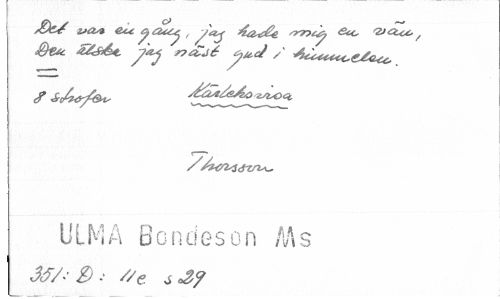 Det var en gång, jag hade mig en vän,
Den älska jag näst gud i himmelen.
8 strofer Kärleksvisa
Thorsson
ULMA Bondeson Ms
351: D: 11e s 29